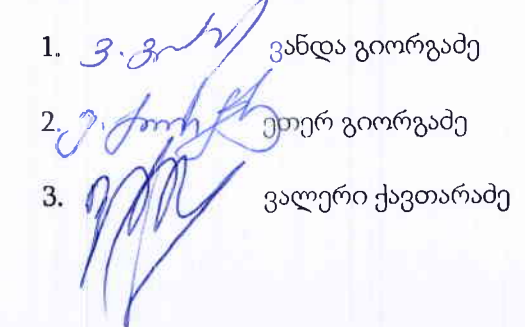 1. ვანდა გიორგაძე
2. ეთერ გიორგაძე
3. ვალერი ქავთარაძე